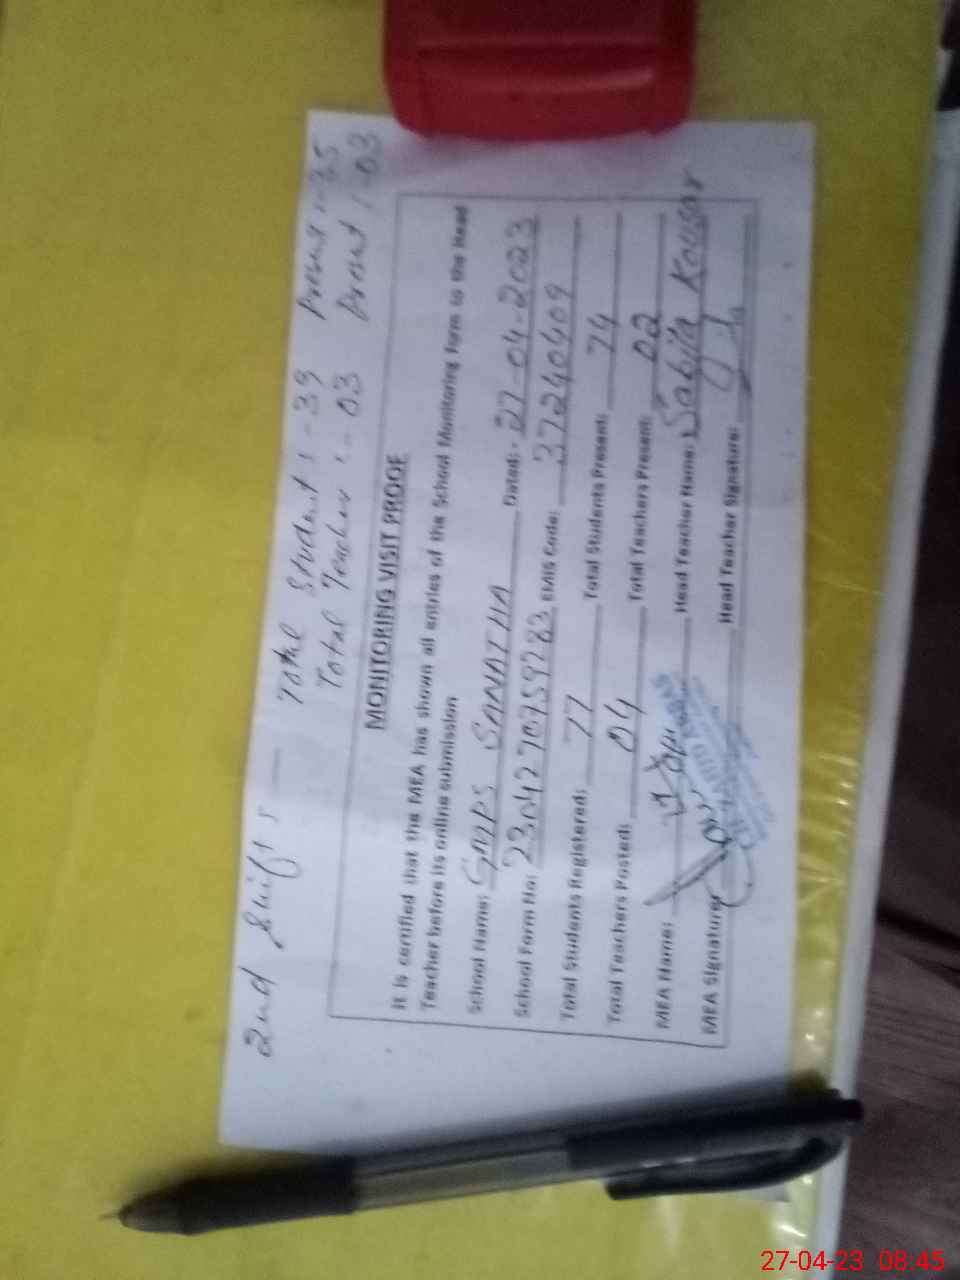 2nd Shift — Total Student :- 39 Present :- 35
Total Teacher :- 03 Present :- 03
MONITORING VISIT PROOF
It is certified that the MEA has shown all entries of the School Monitoring Form to the Head
Teacher before its online submission
School Name: GMPS SANATHA Dated:- 27-04-2023
School Form No: 2304270759783 EMIS Code: 37240409
Total Students Registered: 77 Total Students Present: 74
Total Teachers Posted: 04 Total Teachers Present: 02
MEA Name: Head Teacher Name: Sabija Kousar
MEA Signature: Head Teacher Signature:
27-04-23 08:45